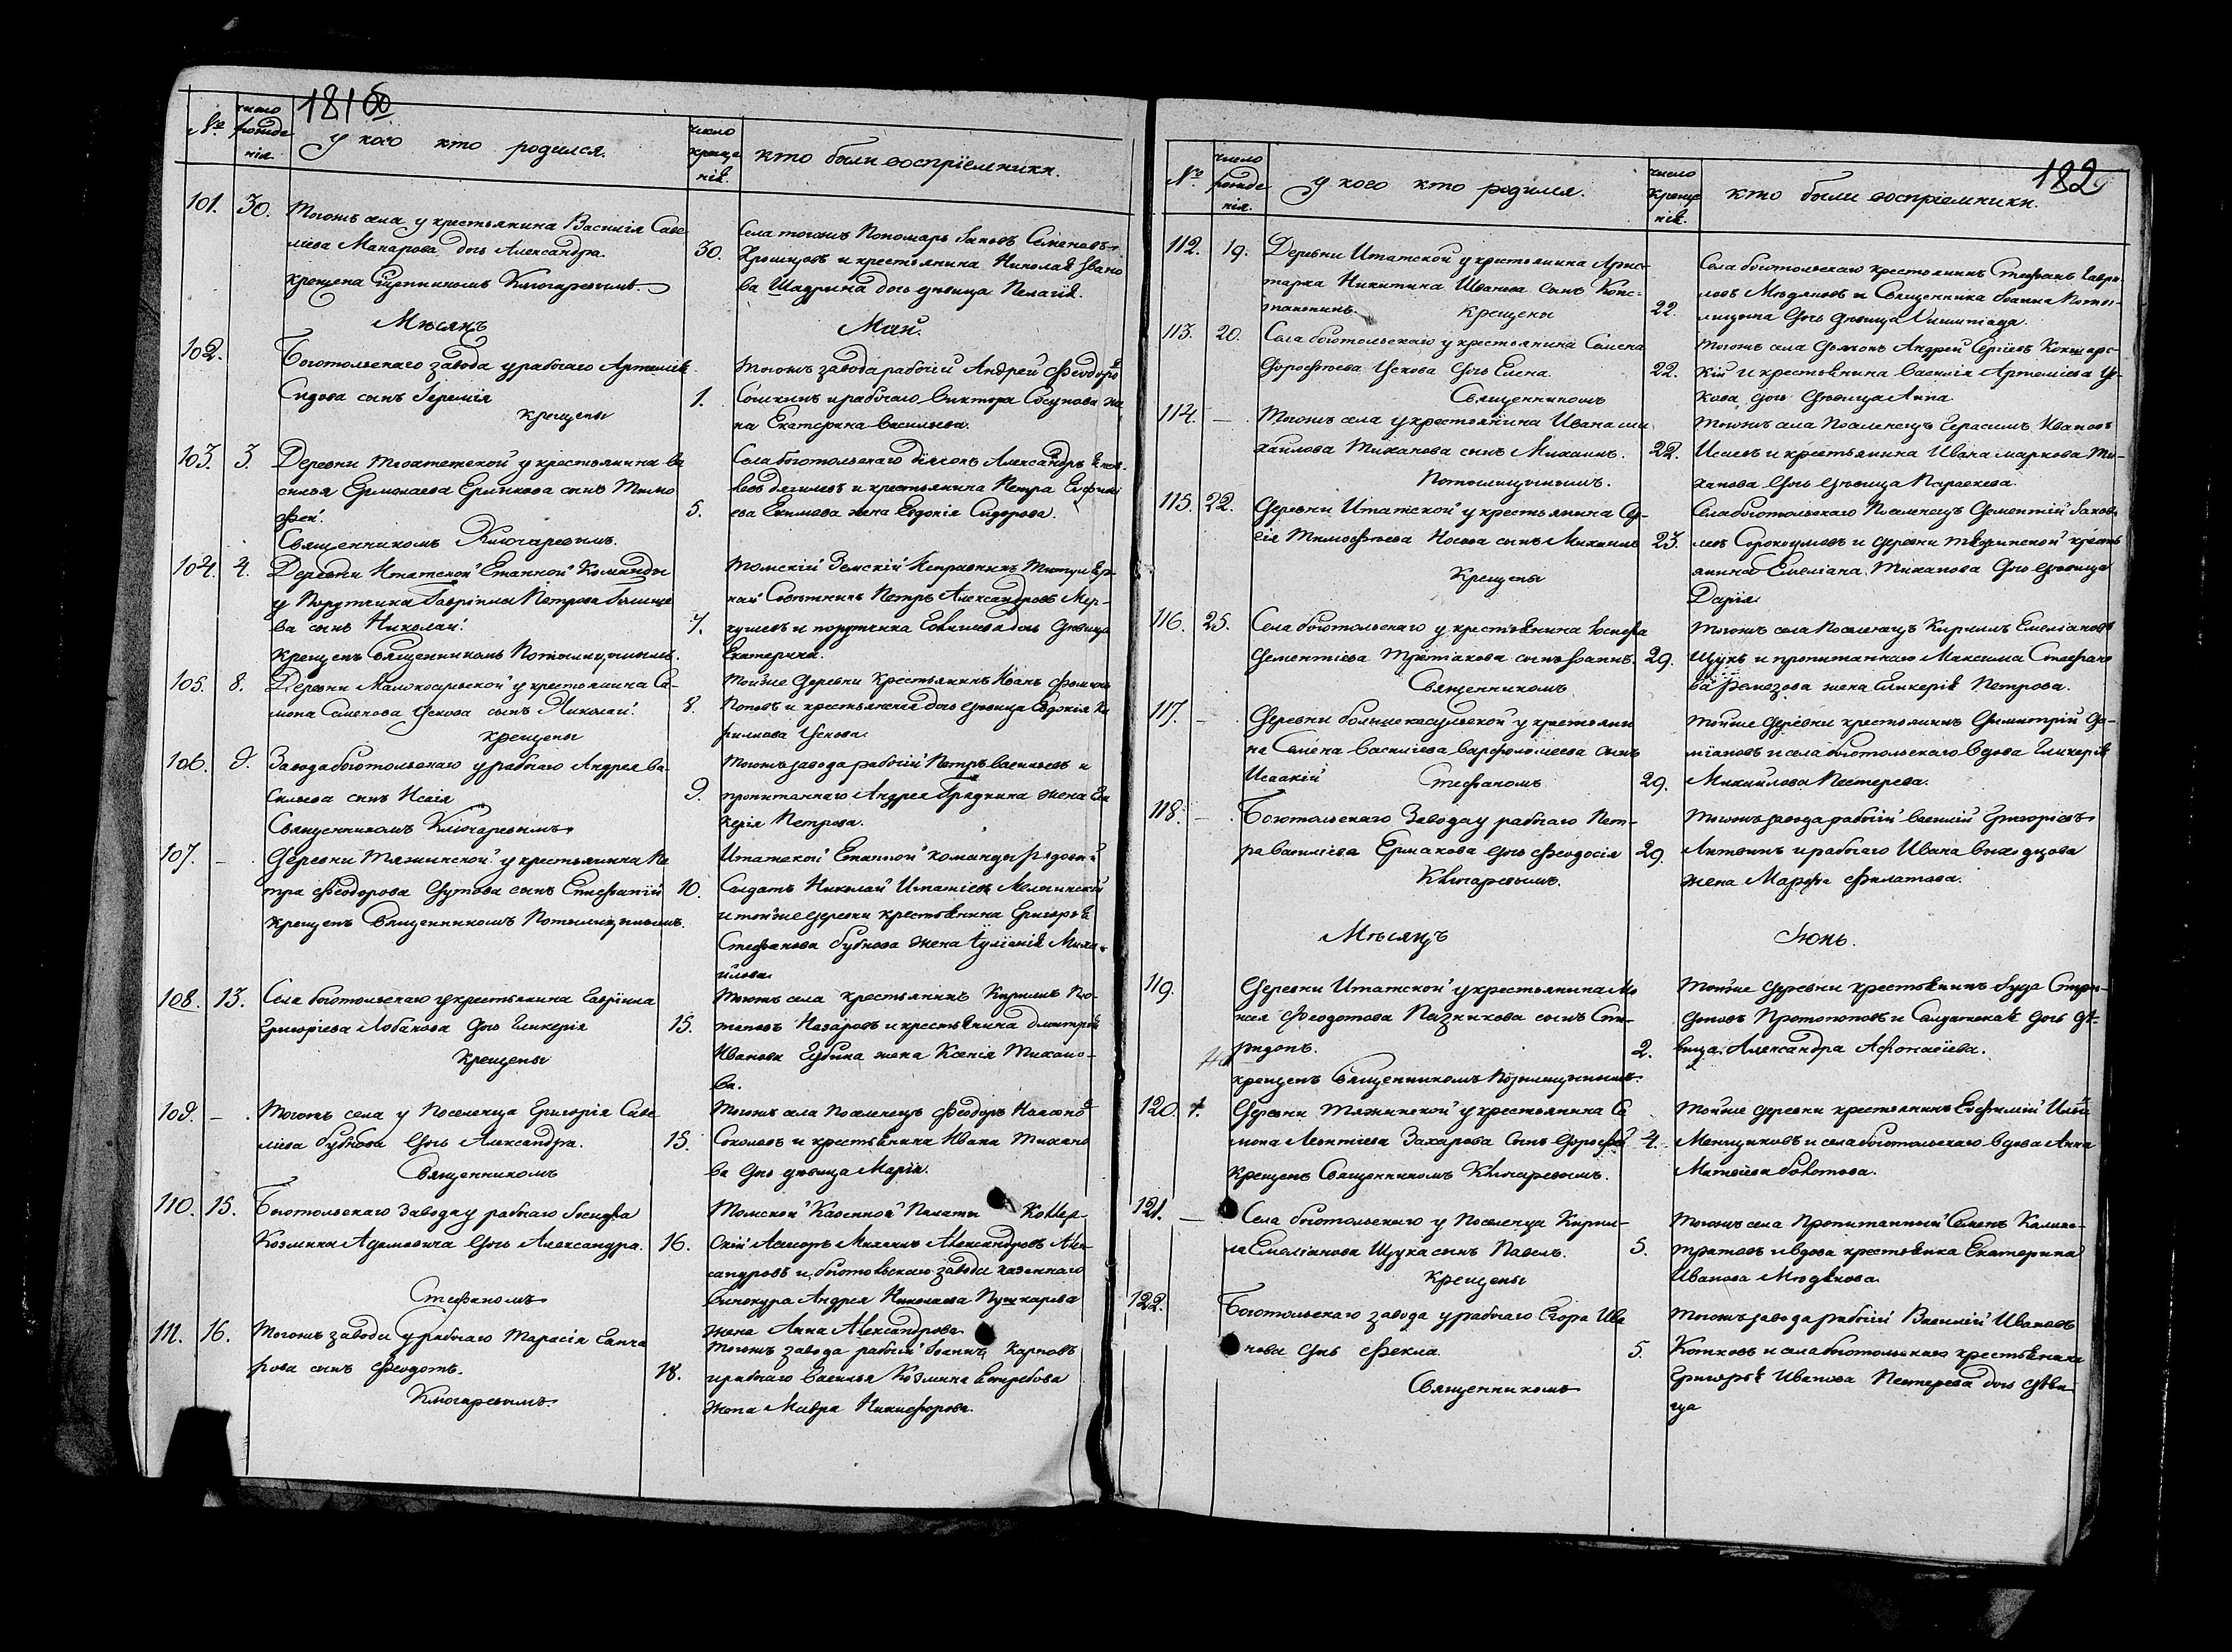 181 об
№ число рожденія. у кого кто родился. число крещенія. кто были восприемники.
101. 30. Тогожъ села у крестьянина Василія Саве
ліева Макарова дочь Александра.
крещена Священникомъ Ключаревымъ.
30. Села тогожъ Пономарь Іаковъ Семеновъ
и крестьянина Николая Ивано
ва Шадрина дочь девица Пелагія.
Месяцъ Май.
102. Боготольскаго завода у рабочаго Артемія
Сидова сынъ Іеремія
крещены
1. Тогожъ завода рабочій Андрей Феодоро
Сошкинъ и рабочаго Виктора Сосунова же
на Екатерина Васильева.
103. 3. Деревни у крестьянина Ва
силья Ермолаева Ермакова сынъ Тимо
фей.
Священникомъ Ключаревымъ.
5. Села боготольскаго діаконъ Александръ
и крестьянина Петра
ева Екимова жена Евдокія Сидорова.
104. 4. Деревни Итатской Етапной Команды
у Порутчика Гавріила Петрова
ва сынъ Николай.
крещенъ Священникомъ Потылицынымъ.
7. Томскій Земскій Исправникъ Титуляр
ный Советникъ Петръ Александровъ Мер-
кушевъ и порутчика дочь девица
Екатерина.
105. 8. Деревни Малокосульской у крестьянина Са-
мона Семенова Ускова сынъ Николай.
крещены
8. Тойже деревни Крестьянинъ Иванъ
Поповъ и крестьянская дочь девица Евдокія Ки
рилкова Ускова.
106. 9. Завода боготольскаго у рабочаго Андрея Ва-
сильева сынъ Исаія
Священникомъ Ключаревымъ.
9. Тогожъ завода рабочій Петръ Васильевъ и
пропитаннаго Андрея Прядкина жена Гли
керія Петрова.
107. – Деревни Тяжинской у крестьянина Пе
тра Феодорова Дутова сынъ Епифаній
Крещенъ Священникомъ Потылицынымъ.
10. Итатской Етапной команды рядовый
Солдатъ Николай Игнатіевъ
и тойже деревни крестьянина Григорья
Стефанова Бубнова жена Іуліанія Миха
илова.
108. 13. Села боготольскаго у крестьянина Гавріила
Григоріева Лобанова дочь Гликерія
крещены
15. Тогожъ села крестьянинъ Кирилъ По-
таповъ Назаровъ и крестьянина Дмитрія
Иванова Губина жена Ксенія Тихано-
ва.
109. – Тогожъ села у Поселенца Григорія Саве
ліева Бубнова дочь Александра.
Священникомъ
15. Тогожъ села Поселенецъ Феодоръ
Соколовъ и крестьянина Ивана Тихано
ва дочь девица Марія.
110. 15. Боготольскаго Завода у рабочаго Іосифа
Козмина Адамовича дочь Александра.
Стефаномъ
16. Томской Казенной Палаты Коллеж-
скій Асесоръ Михаилъ Александровъ
и боготольскаго завода казеннаго
Винокура Андрея Николаева Пушкарева
жена Анна Александрова.
111. 16. Тогожъ завода у рабочаго Тарасія Ганча
рова сынъ Феодотъ.
Ключаревымъ.
18. Тогожъ завода рабочій Іоаннъ Карповъ
и рабочаго Василья Козмина Ястребова
жена Мавра Никифорова.
182
№ число рожденія. у кого кто родился. число крещенія. кто были восприемники.
112. 19. Деревни Итатской у крестьянина Арис-
тарха Никитина Иванова сынъ Конс-
тантинъ. Крещены
22. Села боготольскаго крестьянинъ Стефанъ Гаври-
ловъ Мюдяновъ и Священника Іоанна Поты-
лицына дочь девица
113. 20. Села боготольскаго у крестьянина Семена
Дорофеева Ускова дочь Елена.
Священникомъ
22. Тогожъ села Дьячокъ Андрей Сергіевъ Кокшарс-
кій и крестьянина Василія Артеміева Ус-
кова дочь девица Анна.
114. – Тогожъ села у крестьянина Ивана Ми
хайлова Тиханова сынъ Михаилъ.
Потылицынымъ.
22. Тогожъ села Поселенецъ Герасимъ Ивановъ
Исаевъ и крестьянина Ивана Маркова Ти-
ханова дочь девица Параскева.
115. 22. Деревни Итатской у крестьянина Се-
гія Тимофеева Носова сынъ Михаилъ
Крещены
23. Села боготольскаго Поселенецъ Дементій Іаков
левъ Сорокоумовъ и деревни Тяжинской кресть
янина Емеліана Тиханова дочь девица
Дарія.
116. 25. Села боготольскаго у крестьянина Іосифа
Дементіева Третіакова сынъ Іоаннъ.
Священникомъ
29. Тогожъ села Поселенецъ Кирилъ Емеліановъ
Щукъ и пропитаннаго Максима Стефано
ва Ремезова жена Гликерія Петрова.
117. – Деревни большекосульской у крестьяни
на Семена Василіева Варфоломеева сынъ
Исаакій Стефаномъ
29. Тойже деревни крестьянинъ Димитрій Да-
міановъ и села боготольскаго вдова Гликерія
Михайлова Пестерева.
118. – Боготольскаго Завода у рабочаго Пет-
ра Василіева Ермакова дочь Феодосія
Ключаревымъ.
29. Тогожъ завода рабочій Василій Григоріевъ
Антвинъ и рабочаго Ивана Выходцова
жена Марфа Филатова.
Месяцъ Іюнь.
119. Деревни Итатской у крестьянина Мо
исея Феодотова Пазникова сынъ Спи-
ридонъ.
крещенъ Священникомъ Потылицынымъ.
2. Тойже деревни крестьянинъ Іуда Спири-
доновъ Протопоповъ и Солдатская дочь де-
вица Александра Афонасіева.
120. 1. Деревни Тяжинской у крестьянина Са
мона Леонтіева Захарова сынъ Дорофей
Крещенъ Священникомъ Ключаревымъ.
4. Тойже деревни крестьянинъ Евфимій Ильи
Менщиковъ и села боготольскаго вдова Анна
Матвеева Болотова.
121. – Села боготольскаго у Поселенца Кирил-
ла Емеліанова Щука сынъ Павелъ.
Крещены
5. Тогожъ села Пропитанный Семенъ Калис-
тратовъ и вдова крестьянка Екатерина
Иванова Мюдянова.
122. Боготольскаго завода у рабочаго Егора Ива
нова дочь Фекла.
Священникомъ
5. Тогожъ завода рабочій Василій Ивановъ
Котковъ и села боготольскаго крестьянина
Григорья Иванова Пестерева дочь деви-
ца